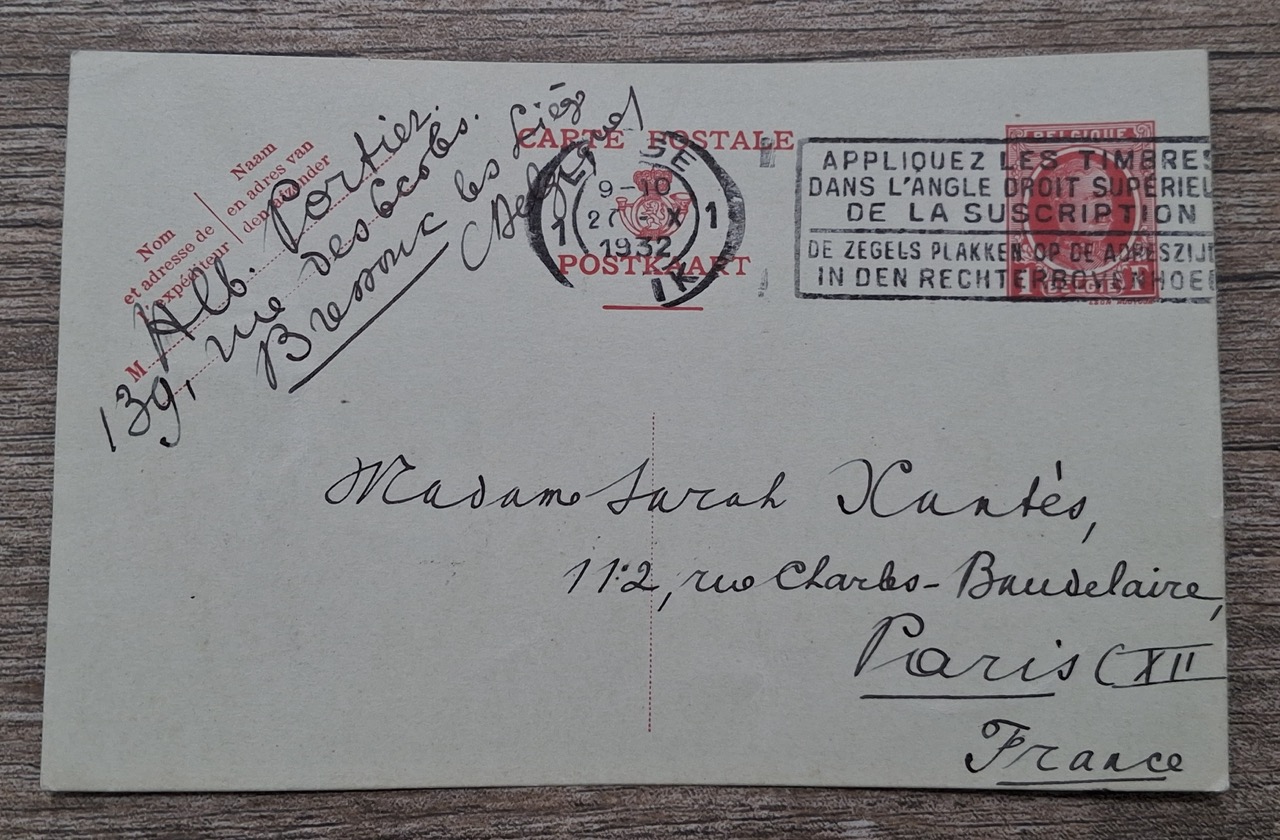 CARTE POSTALE
POSTKAART
Nom
et adresse de
l'expéditeur
Naam
en adres van
den afzender
M
Alb. Portier.
139, rue des
Bressoux les Liége
(Belgique)
9-10
27 - X
1932
1 1
APPLIQUEZ LES TIMBRES
DANS L'ANGLE DROIT SUPÉRIEU
DE LA SUSCRIPTION
DE ZEGELS PLAKKEN OP DE ADRESZIJD
IN DEN RECHTERBOVENHOEK
BELGIQUE
BELGIË
Madame Sarah Xantès,
11:2, rue Charles-Baudelaire,
Paris (XII
France